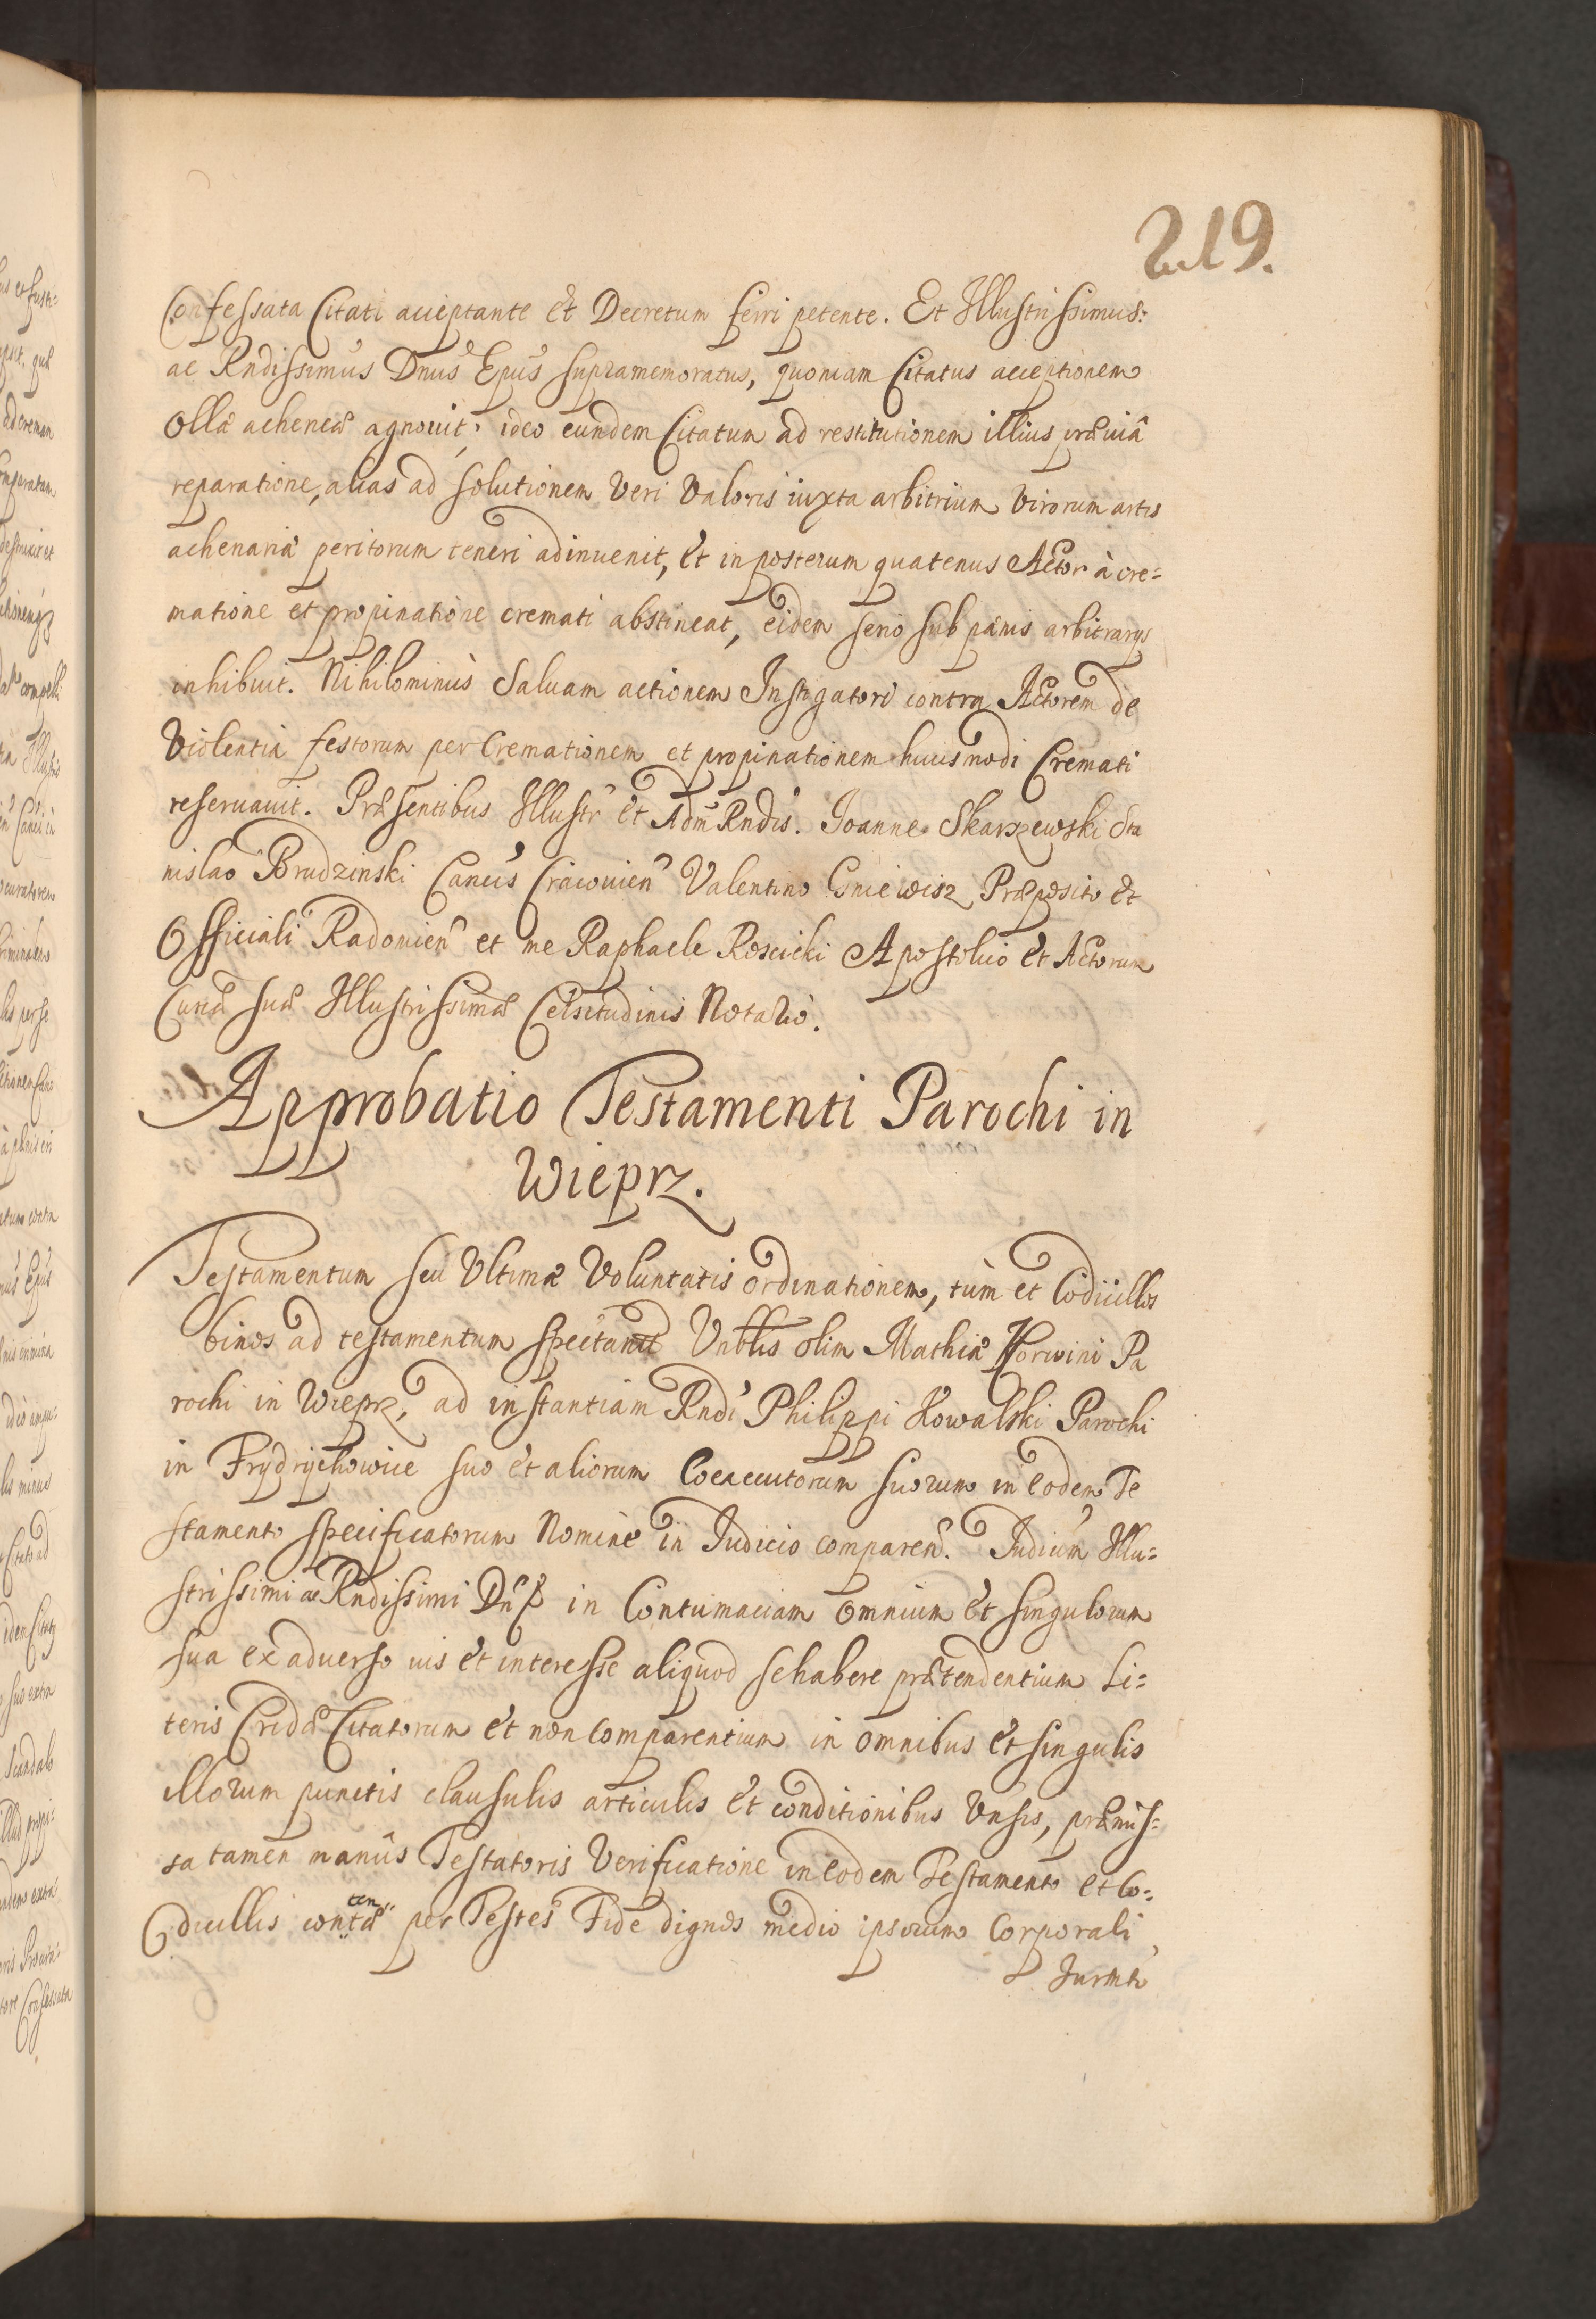 219.
Confessata Citati acceptante et Decretum ferri petente. Et Illustrissimus
ac Rndissimus Dnus Epus supramemoratus, quoniam Citatus acceptionem
ollæ acheneæ agnouit, ideo eundem Citatum ad restitutionem illius præuiâ
reparatione, alias ad solutionem veri valoris iuxta arbitrium virorum artis
achenariæ peritorum teneri adinuenit, et in posterum quatenus Actor à cre=
matione et propinatione cremati abstineat, eidem serio sub pænis arbitrarys
inhibuit. Nihilominùs saluam actionem Instigatori contra Actorem de
Violentia festorum per Cremationem et propinationem huiusmodi Cremati
reseruauit. Præsentibus Illustr et Adm Rndis. Ioanne Skarzewski Sta
nislao Brudzinski Cancis Cracouien Valentino Gniewisz Præposito et
Officiali Radomien et me Raphaele Roscicki Apostolico et Actorum
Curiæ suæ Illustrissimæ Celsitudinis Notario.
Approbatio Testamenti Parochi in
Wieprz.
Testamentum seu Vltimæ Voluntatis ordinationem, tùm et Codicillos
binos ad testamentum Vnblis olim Mathiæ Korwini Pa
rochi in Wieprz, ad instantiam Rndi Philippi Kowalski Parochi
in Frydrychowice suo et aliorum Coexecutorum suorum in eodem Te
stamento specificatorum Nomine in Iudicio comparen. Iudicium Illu=
strissimi ac Rndissimi Dn in Contumaciam omnium et singulorum
sua ex aduerso ius et interesse aliquod se habere prætendentium Li=
teris Cridæ Citatorum et non comparentium in omnibus et singulis
illorum punctis clausulis articulis et conditionibus Vnsis, præmis=
sa tamen manûs Testatoris Verificatione in eodem Testamento et Co=
dicillis contentæ per Testes Fide dignos medio ipsorum Corporali
Iurmto